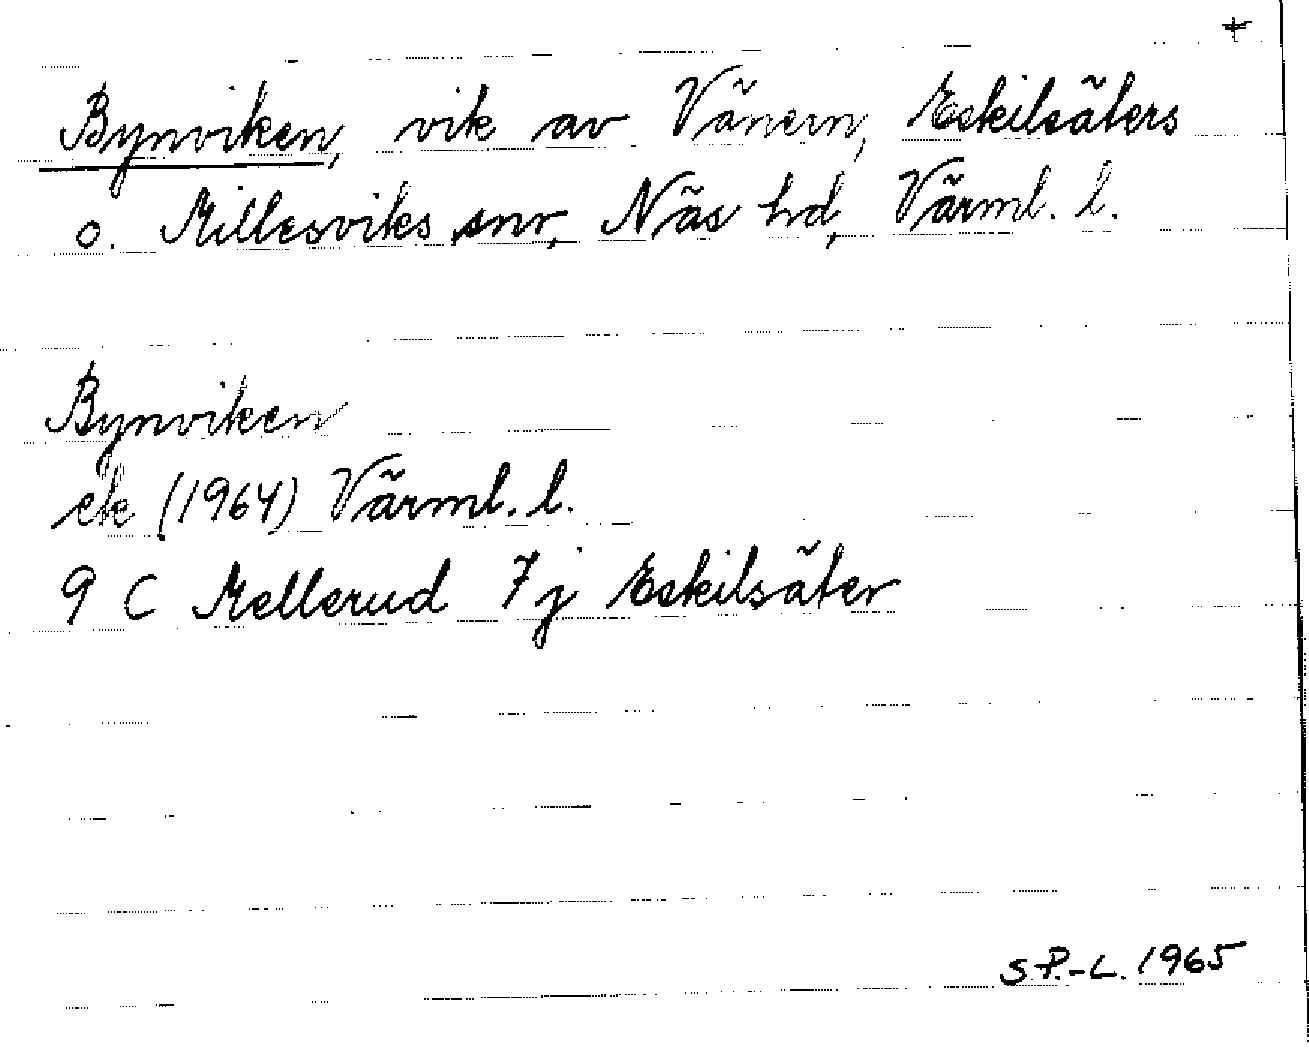 +
Bynviken, vik av Vänern, Eskilsäters
o. Millesviks snr, Näs hd, Värml. l.
Bynviken
ek (1964) Värml. l.
9 C Mellerud 7j Eskilsäter
S P.-L. 1965